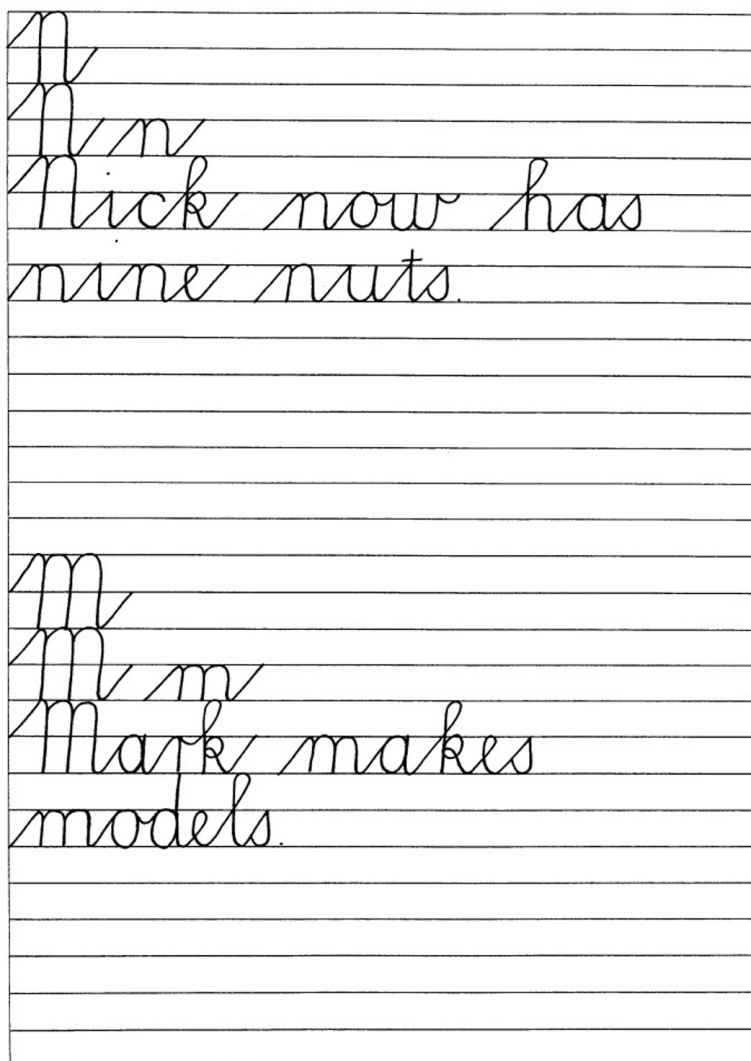 N
N n
Nick now has
nine nuts.
M
M m
Mark makes
models.